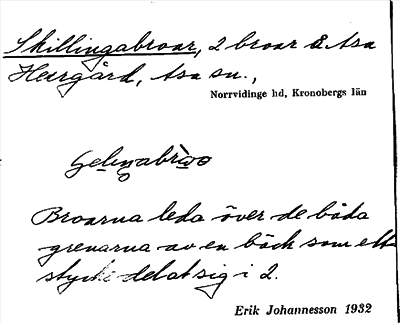 Skillingabroar, 2 broar å Asa
Herrgård, Asa sn.,
Norrvidinge hd, Kronobergs län
Broarna leda över de båda
grenarna av en bäck som ett
stycke delat sig i 2.
Erik Johannesson 1932